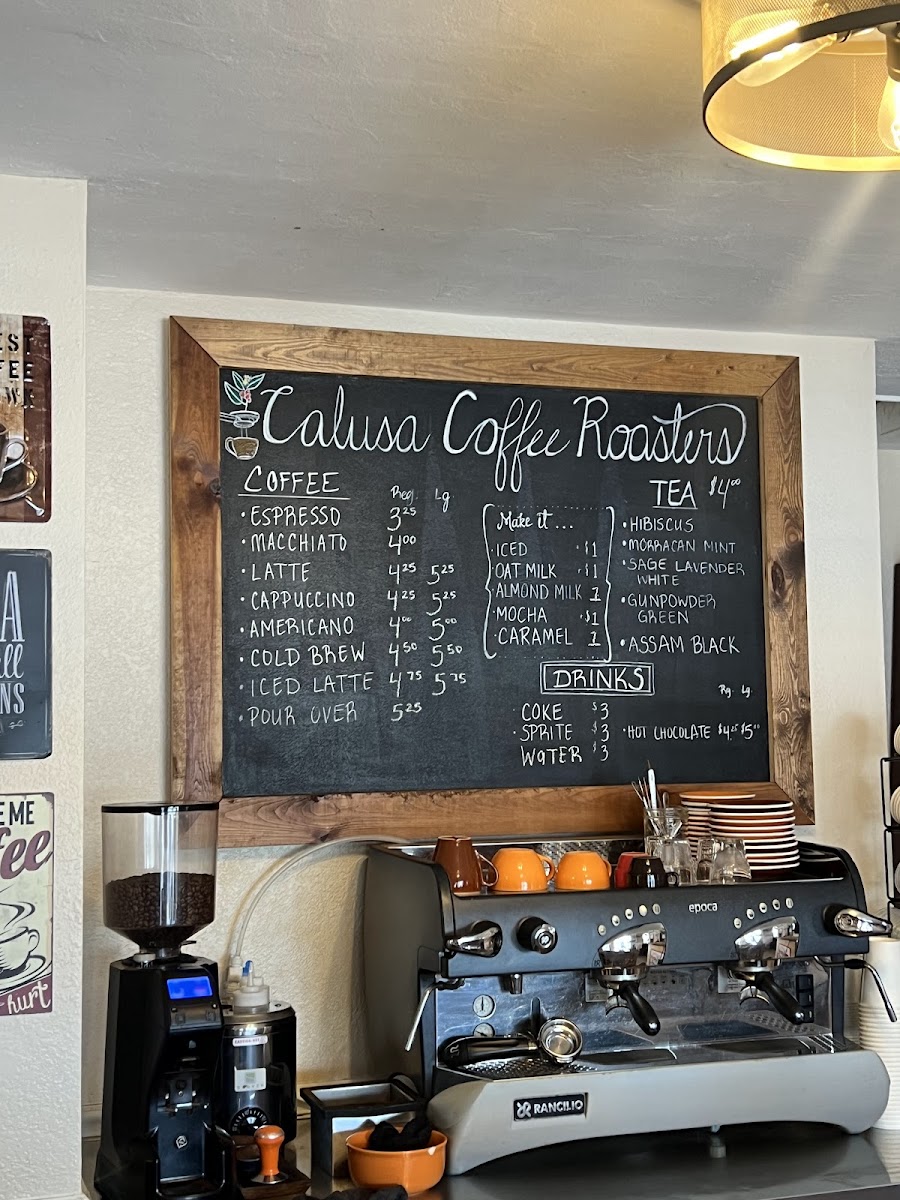 Calusa Coffee Roasters
COFFEE
Reg. Lg
• ESPRESSO 3 25
• MACCHIATO 4 00
• LATTE 4 25 5 25
• CAPPUCCINO 4 25 5 25
• AMERICANO 4 00 5 00
• COLD BREW 4 50 5 50
• ICED LATTE 4 75 5 75
• POUR OVER 5 25
Make it ...
• ICED • $1
OAT MILK • $1
• ALMOND MILK 1
• MOCHA • $1
• CARAMEL 1
TEA $4 00
• HIBISCUS
• MORRACAN MINT
• SAGE LAVENDER
WHITE
• GUNPOWDER
GREEN
• ASSAM BLACK
DRINKS
• COKE $3
• SPRITE $3
WATER $3
Rg. Lg.
• HOT CHOCOLATE $4 25 $5 00
EST
FEE
A
NS
E ME
fee
hurt
epoca
RANCILIO